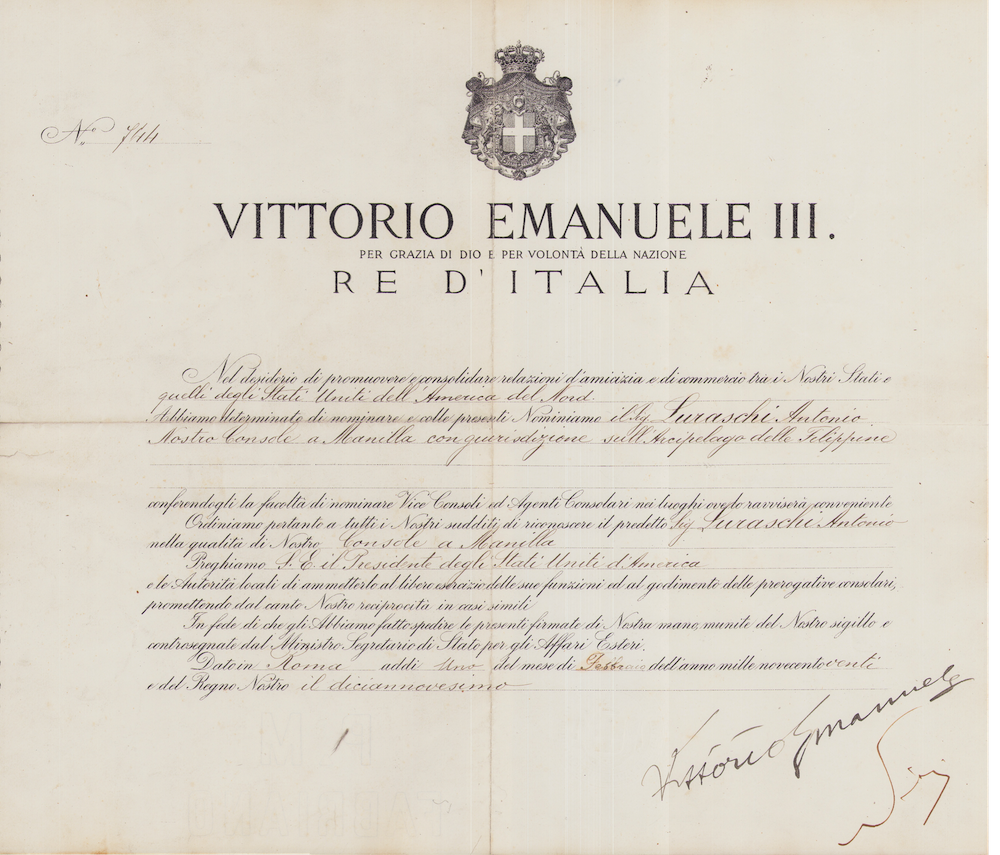 N.o 744
VITTORIO EMANUELE III.
PER GRAZIA DI DIO E PER VOLONTÀ DELLA NAZIONE
RE D'ITALIA
Nel desiderio di promuovere e consolidare relazioni d'amicizia e di commercio tra i Nostri Stati e
quelli degli Stati Uniti dell'America del Nord
Abbiamo determinato di nominare e colle presenti Nominiamo il Sig Luraschi Antonio
Nostro Console a Manilla con giurisdizione sull'Arcipelago delle Filippine
conferendogli la facoltà di nominare Vice Consoli ed Agenti Consolari nei luoghi ove lo ravviserà conveniente
Ordiniamo pertanto a tutti i Nostri sudditi di riconoscere il predetto Sig Luraschi Antonio
nella qualità di Nostro Console a Manilla
Preghiamo S. E. il Presidente degli Stati Uniti d'America
e le Autorità locali di ammetterlo al libero esercizio delle sue funzioni ed al godimento delle prerogative consolari,
promettendo dal canto Nostro reciprocità in casi simili
In fede di che gli Abbiamo fatto spedire le presenti firmate di Nostra mano, munite del Nostro sigillo e
controsegnate dal Ministro Segretario di Stato per gli Affari Esteri.
Dato in Roma addì Uno del mese di Febbraio dell'anno mille novecento venti
e del Regno Nostro il diciannovesimo
Vittorio Emanuele